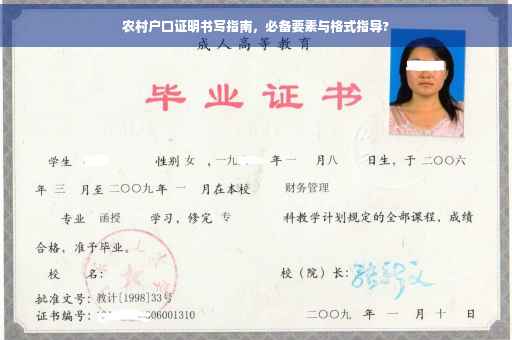 农村户口证明书写指南，必备要素与格式指导?
成人高等教育
毕业证书
学生 性别 女 ，一九 年 一 月八 日生，于 二〇〇六
年 三 月至 二〇〇九 年 一 月在本校 财务管理
专业 函授 学习，修完 专 科教学计划规定的全部课程，成绩
合格，准予毕业。
校 名： 校（院）长：
批准文号：教计[1998]33号
证书编号： 06001310 二〇〇九 年 一 月 十 日